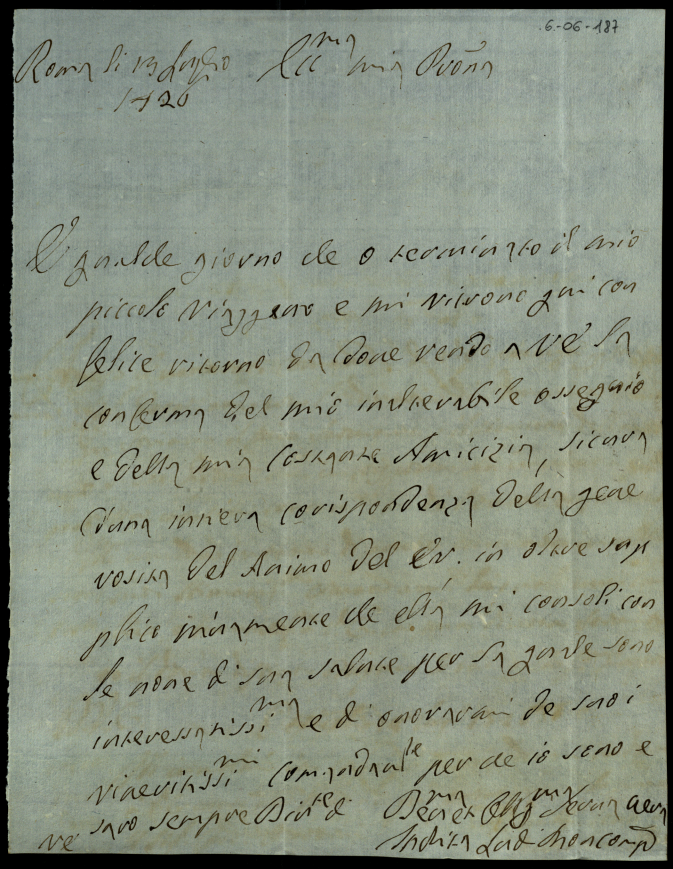 6-06-187
Roma li 13 Luglio Ecc.ma mia Pro͂na
1720
E qualche giorno che o terminato il mio
piccolo viaggeno e mi ritrovo qui con
felice ritorno da dove rendo a VE la
conferma del mio inalterabile ossequio
e della mia costante Amicizia, sicura
d'una intiera corispondenza della gene
rosita del Animo del EV. in oltre sup
plico instamente che ella mi consoli con
le nove di sua salute per la quale sono
interessatissi.ma e di onorarmi de suoi
rineritissi.mi comandam.te per che io sono e
saro sempre Di
VE